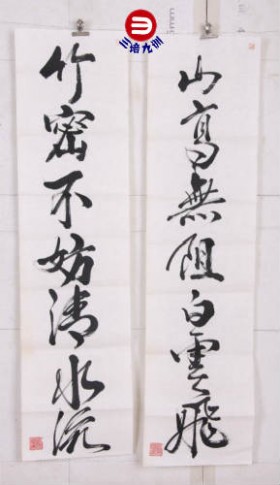 三培九洲
山高無阻白雲飛
竹密不妨清水流